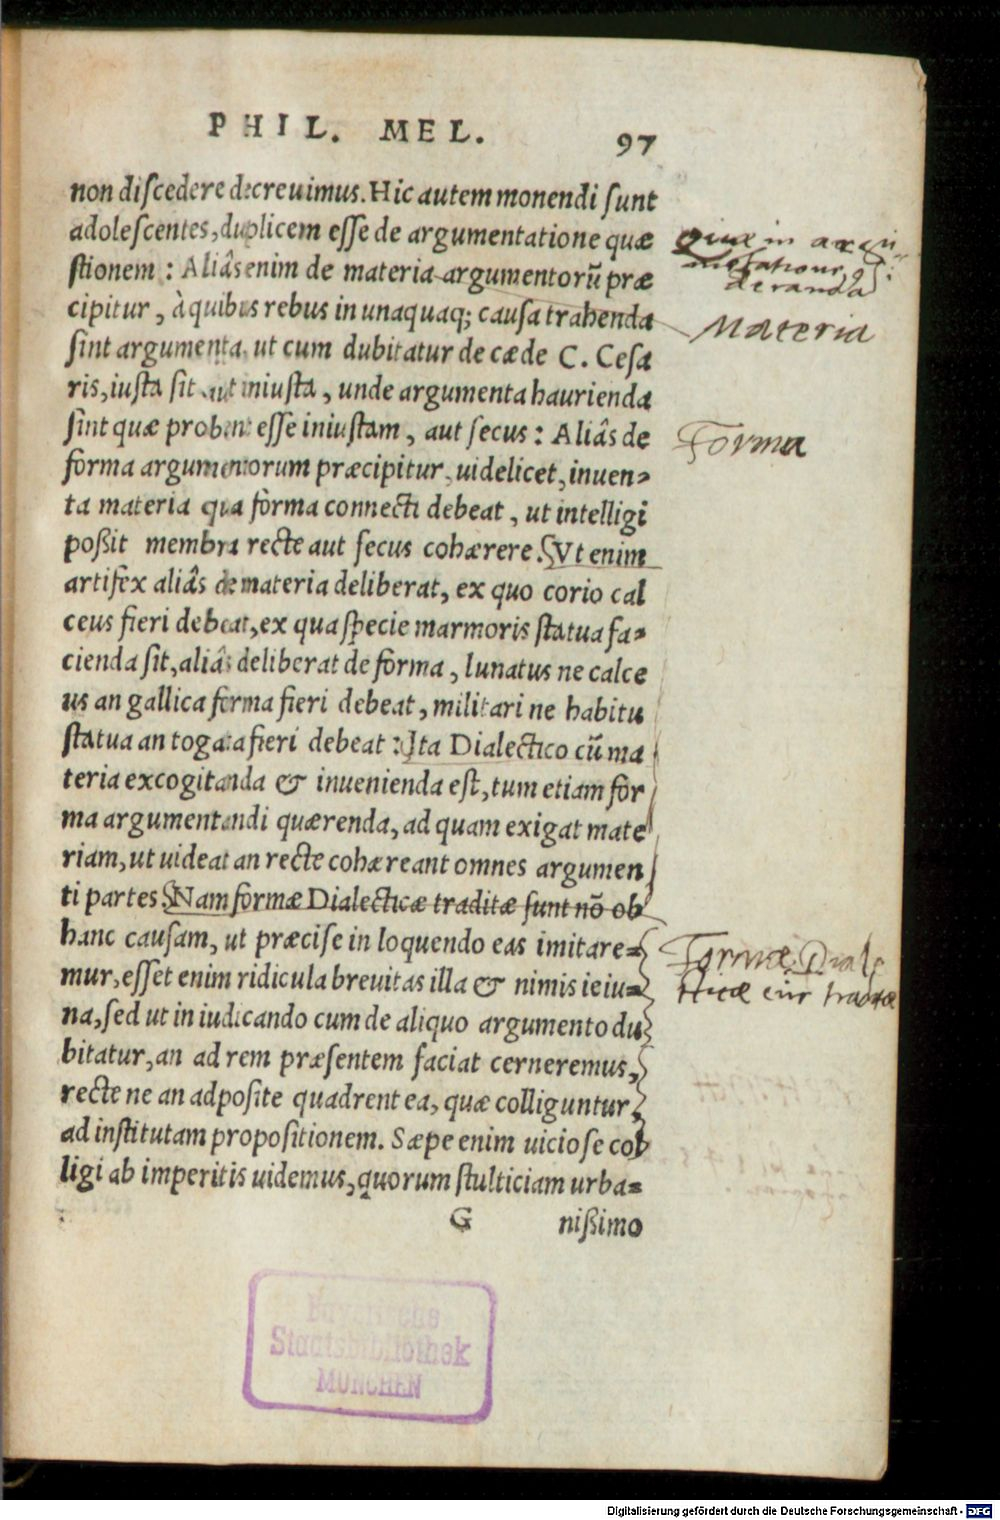 PHIL. MEL. 97
non discedere decreuimus. Hic autem monendi sunt
adolescentes, duplicem esse de argumentatione quæ
stionem : Aliâs enim de materia argumentorũ præ
cipitur, à quibus rebus in unaquaq; causa trahenda
sint argumenta, ut cum dubitatur de cæde C. Cesa
ris, iusta sit aut iniusta, unde argumenta haurienda
sint quæ probent esse iniustam, aut secus : Aliâs de
forma argumentorum præcipitur, uidelicet, inuen-
ta materia qua forma connecti debeat, ut intelligi
poßit membra recte aut secus cohærere. Vt enim
artifex aliâs de materia deliberat, ex quo corio cal
ceus fieri debeat, ex qua specie marmoris statua fa-
cienda sit, aliâs deliberat de forma, lunatus ne calce
us an gallica forma fieri debeat, militari ne habitu
statua an togata fieri debeat : Ita Dialectico cũ ma
teria excogitanda & inuenienda est, tum etiam for
ma argumentandi quærenda, ad quam exigat mate
riam, ut uideat an recte cohæreant omnes argumen
ti partes. Nam formæ Dialecticæ traditæ sunt nõ ob
hanc causam, ut præcise in loquendo eas imitare-
mur, esset enim ridicula breuitas illa & nimis ieiu-
na, sed ut in iudicando cum de aliquo argumento du
bitatur, an ad rem præsentem faciat cerneremus,
recte ne an adposite quadrent ea, quæ colliguntur,
ad institutam propositionem. Sæpe enim uiciose col
ligi ab imperitis uidemus, quorum stulticiam urba-
G nißimo
Quæ in argu
deranda
Materia
Forma
Formæ Diale
cticæ cur traditæ
Bayerische
Staatsbibliothek
MÜNCHEN
Digitalisierung gefördert durch die Deutsche Forschungsgemeinschaft - DFG